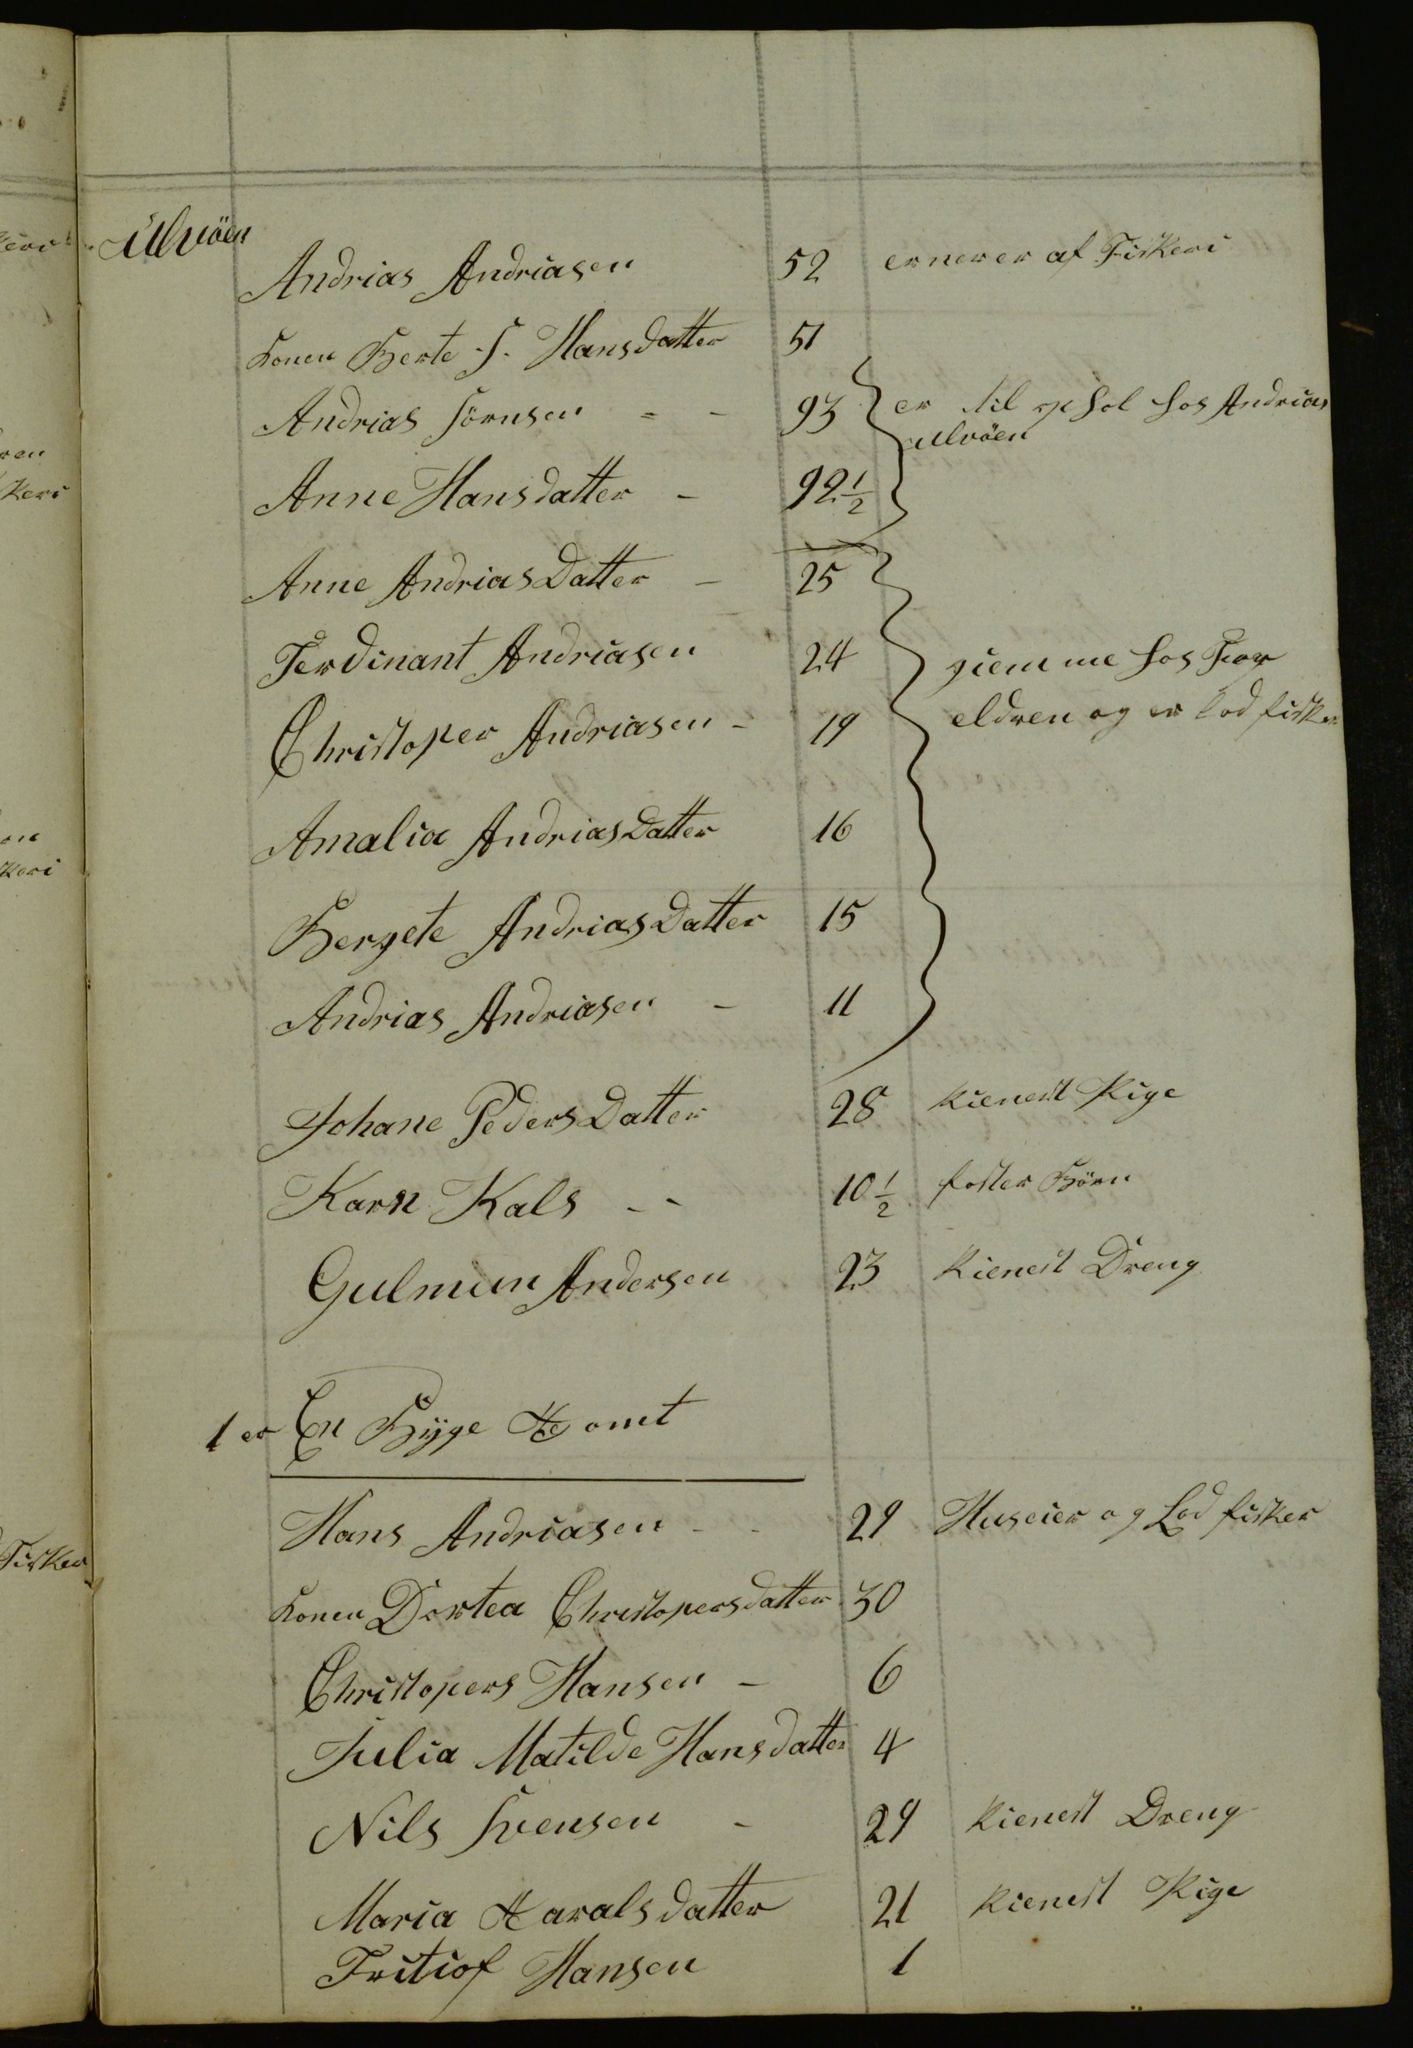 Ulvöen
Andrias Andriasen 52 ernerer af Fiskeri
Konen Berte S. Hansdatter 51
Andrias Sörnsen = - 93 er til ophol hos Andrias
Ulvöen
Anne Hansdatter - 92 1/2
Anne AndriasDatter - 25
Ferdinant Andriasen 24 hiemme hos For
Christoper Andriasen - 19 eldren og er Lod fisker
Amalia AndriasDatter 16
Bergete AndriasDatter 15
Andrias Andriasen - 11
Johane PedersDatter 28 Kienest Pige
Karn Kals - - 10 1/2 foster Börn
Gulmun Andersen 23 Kienest Dreng
1 er En Byge Homt
Hans Andriasen - - 29 Huseier og Lod fisker
Konen Dortea Christopersdatter 30
Christopers Hansen - 6
Julia Matilde Hansdatter 4
Nils Svensen - 29 Kienest Dreng
Maria Haralsdatter 21 Kienest Pige
Fritiof Hansen 1